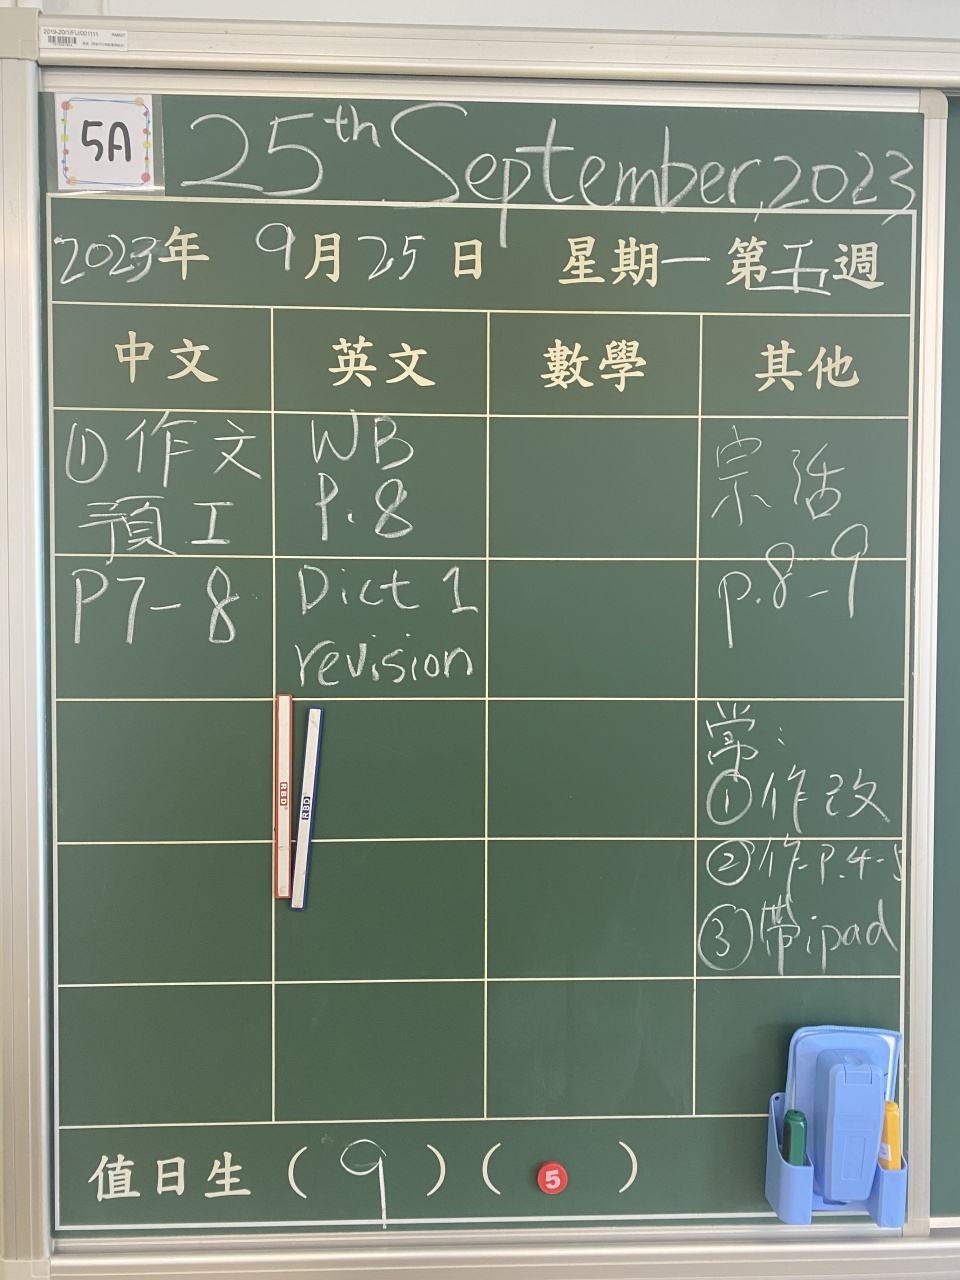 2019-20/1/FU/001111
5A
25th September, 2023
2023年 9月25日 星期一 第五週
中文 英文 數學 其他
①作文
預工
P7-8
WB
P.8
Dict 1
revision
宗活
p.8-9
常:
①作改
②作P.4-5
③帶ipad
RBD
RBD
值日生 ( 9 ) ( 5 )